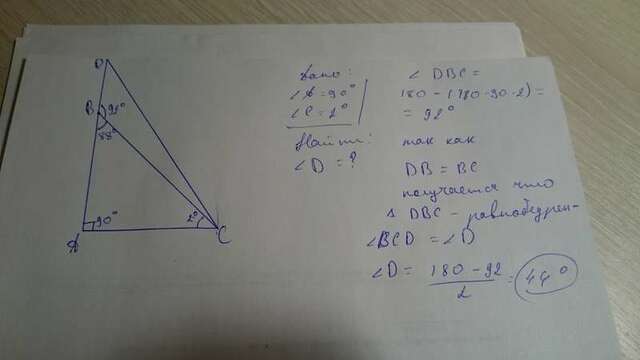 D
B 92°
88°
90° 2°
A C
Дано:
∠A = 90°
∠C = 2°
Найти:
∠D = ?
∠ DBC =
180 - (180-90-2) =
= 92°
так как
DB = BC
получается что
Δ DBC - равнобедрен-
∠BCD = ∠D
∠D = 180 - 92 / 2 = 44°